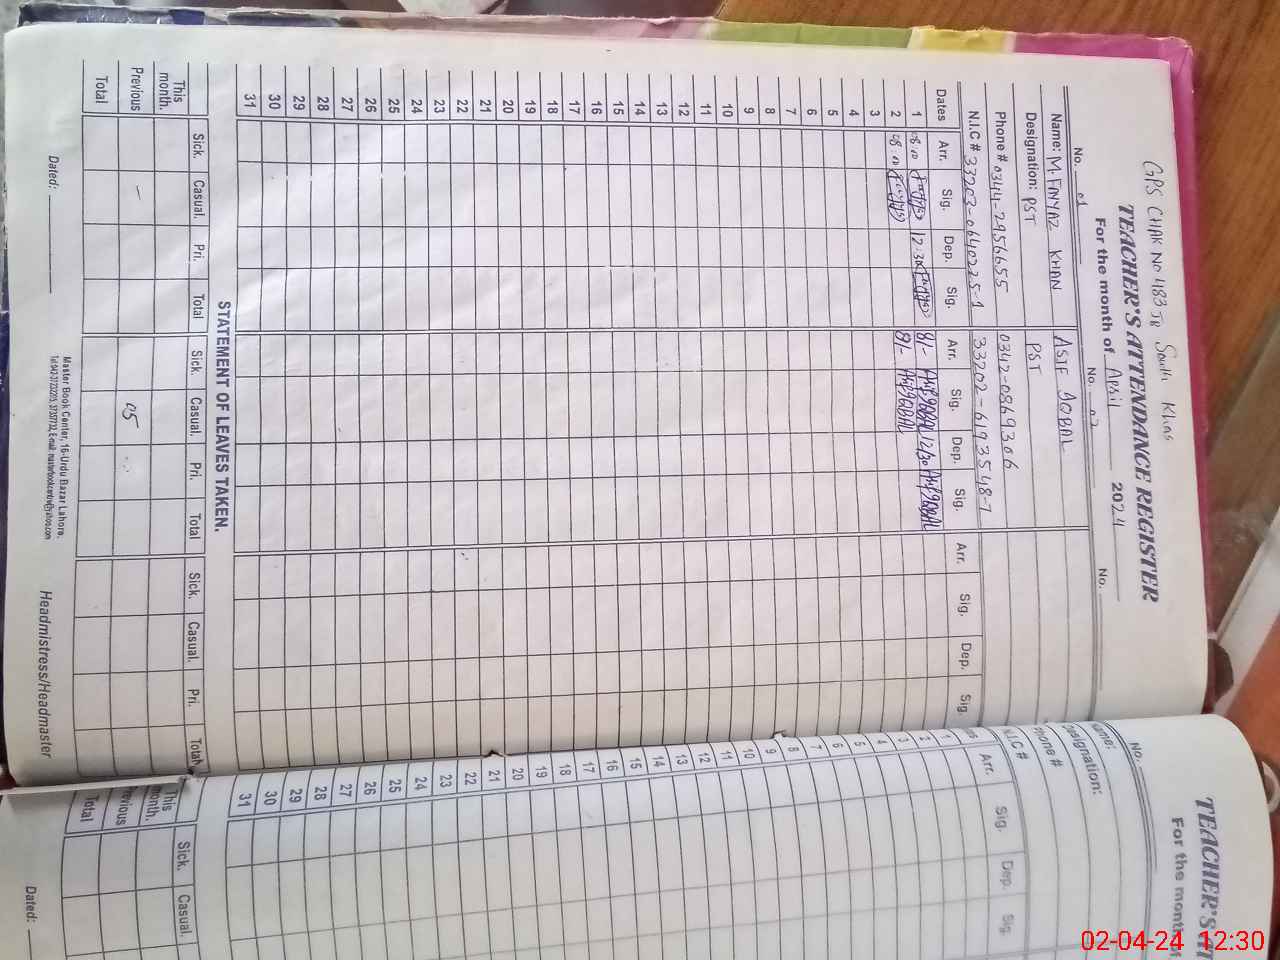 GPS CHAK No 483 JB South Khas
TEACHER'S ATTENDANCE REGISTER
For the month of April 2024
No. 01 No. 02 No.
Name: M. FAYYAZ KHAN ASIF IQBAL
Designation: PST PST
Phone # 0344-2956655 0342-0869306
N.I.C # 33203-0640275-9 33202-6193548-7
Dates Arr. Sig. Dep. Sig. Arr. Sig. Dep. Sig. Arr. Sig. Dep. Sig.
1 08:00 Fayyaz 12:30 Fayyaz 8/- Asif IQBAL 12/30 Asif IQBAL
2 08:00 Fayyaz 8/- Asif IQBAL
3
4
5
6
7
8
9
10
11
12
13
14
15
16
17
18
19
20
21
22
23
24
25
26
27
28
29
30
31
STATEMENT OF LEAVES TAKEN.
Sick. Casual. Pri. Total Sick. Casual. Pri. Total Sick. Casual. Pri. Total
This month.
Previous — 05
Total
Master Book Center, 16-Urdu Bazar Lahore.
Dated: Headmistress/Headmaster
TEACHER'S AT
For the month of
No.
Name:
Designation:
Phone #
N.I.C #
Arr. Sig. Dep. Sig.
1
2
3
4
5
6
7
8
9
10
11
12
13
14
15
16
17
18
19
20
21
22
23
24
25
26
27
28
29
30
31
Sick. Casual.
This month.
Previous
Total
Dated:
02-04-24 12:30